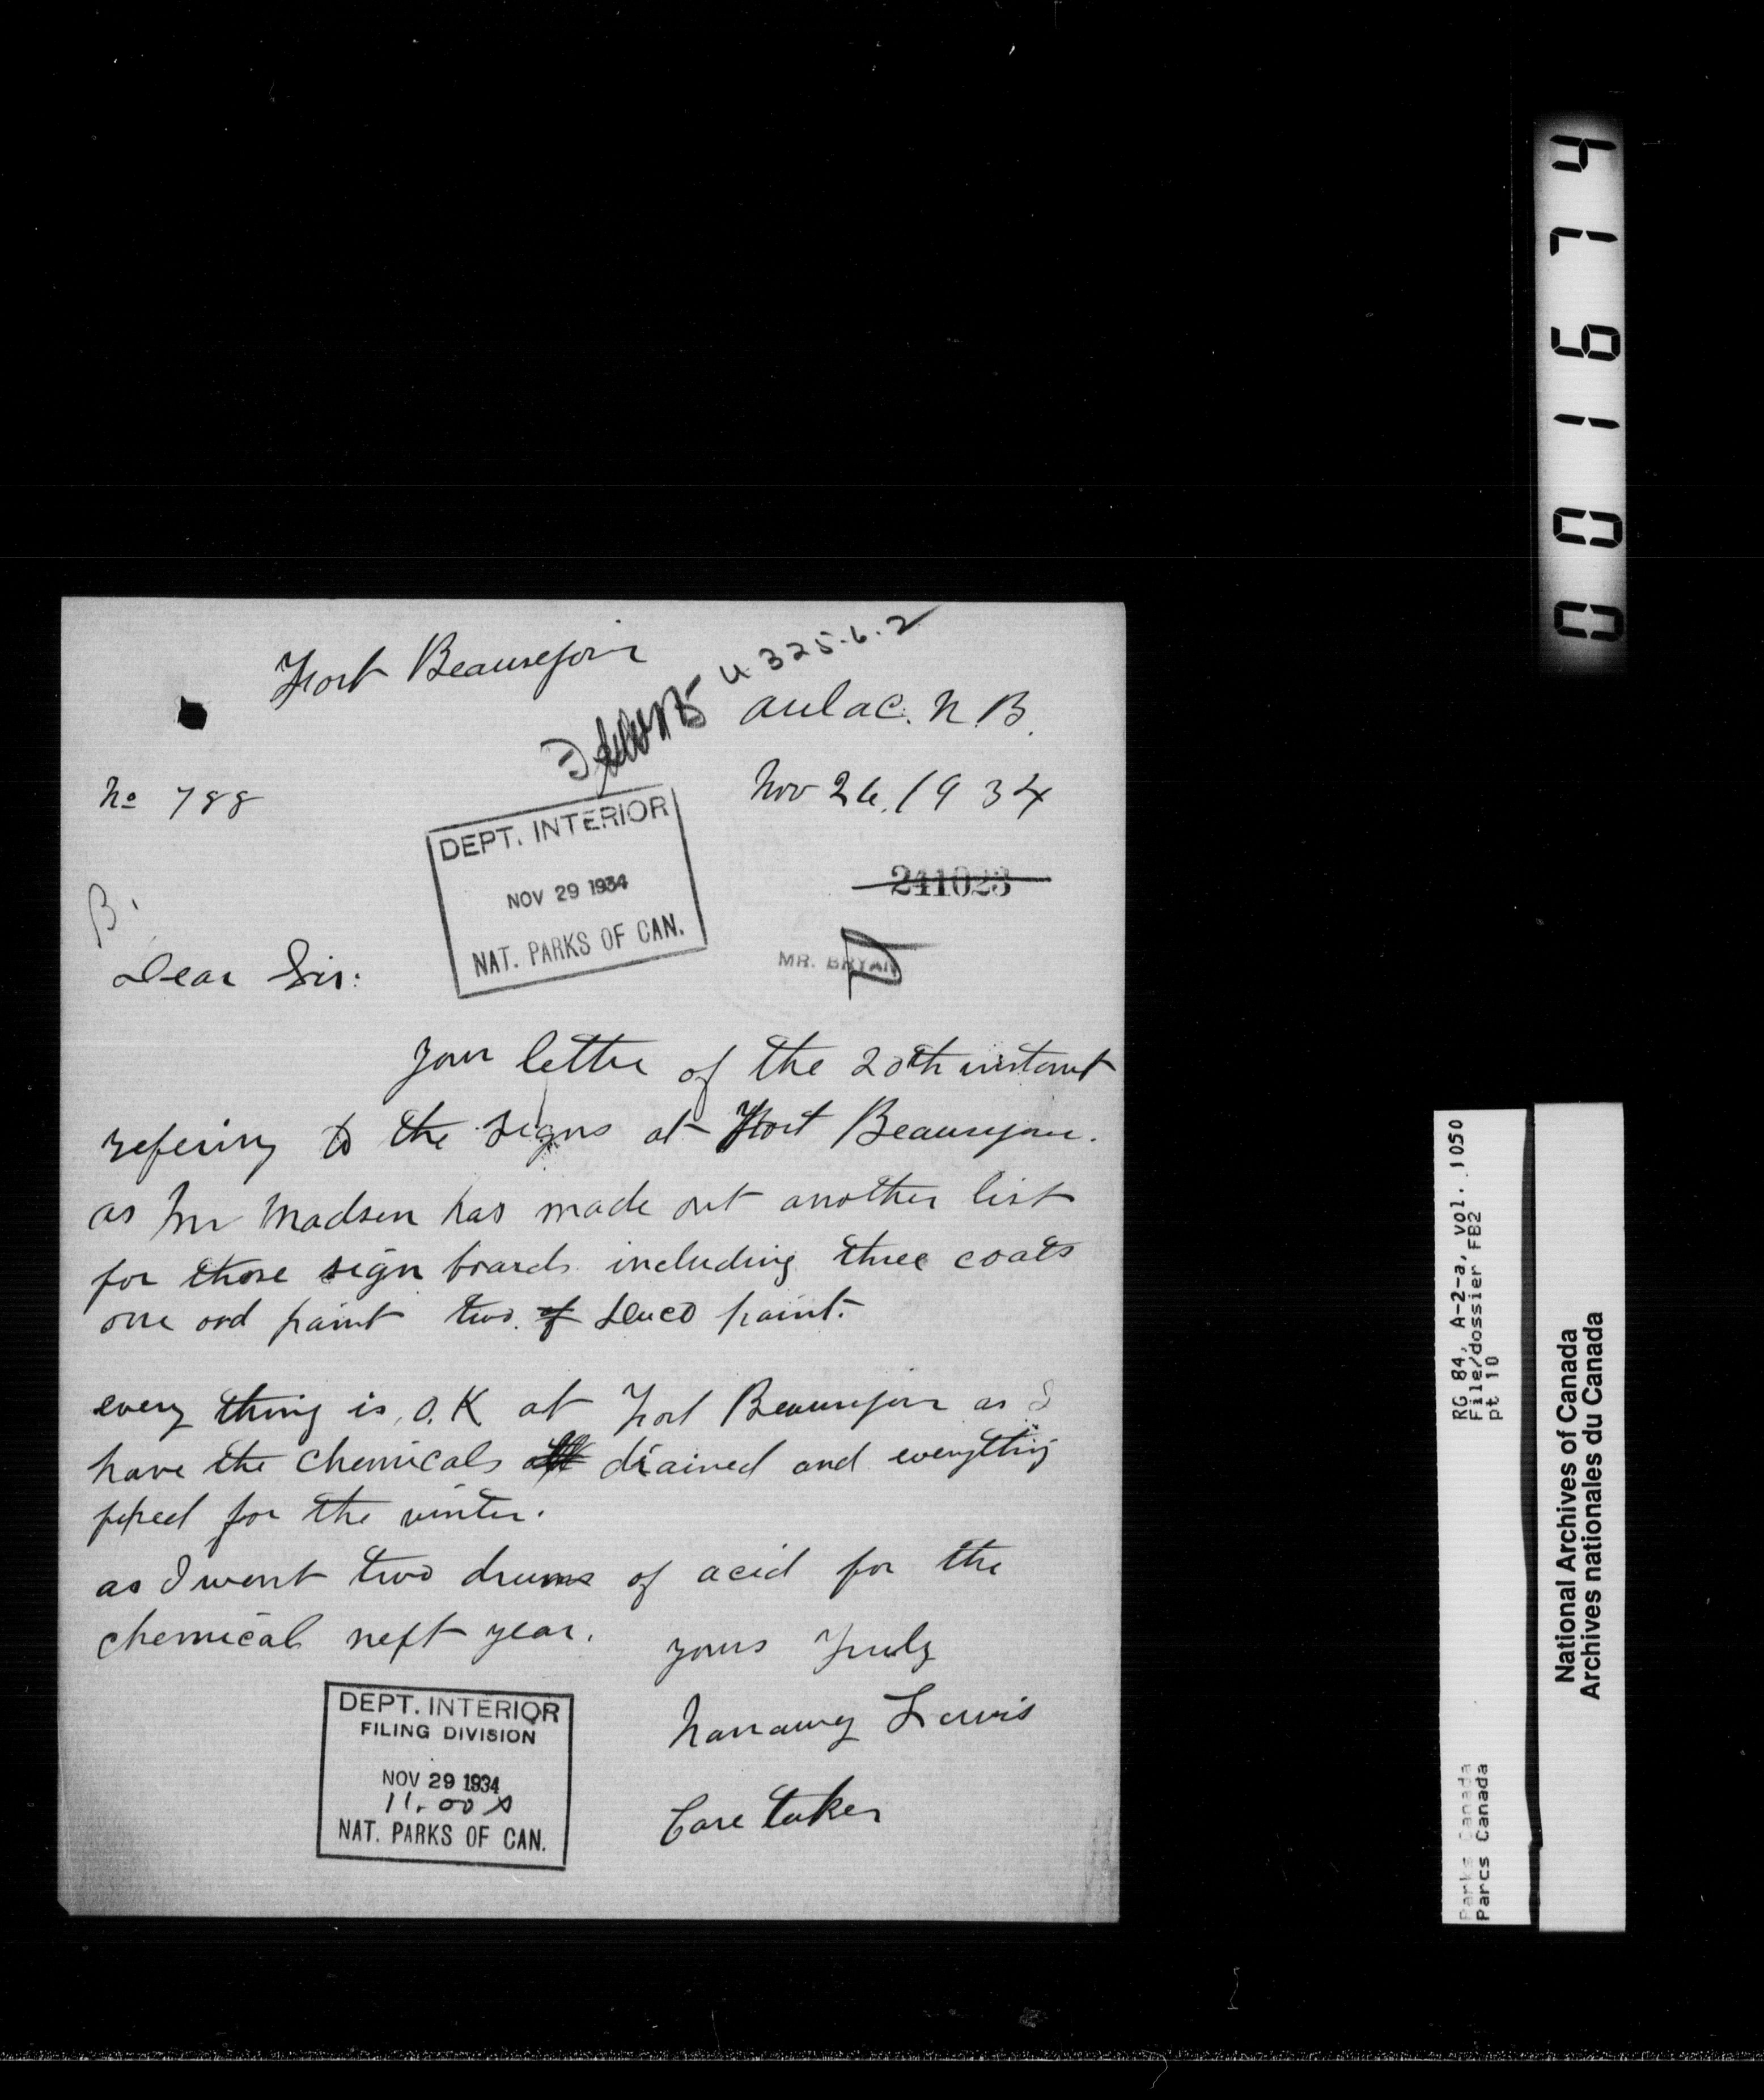 Fort Beausejour
U 325-6-2
Aulac. N. B.
No 788
Nov 26, 1934
DEPT. INTERIOR
NOV 29 1934
NAT. PARKS OF CAN.
241023
MR. BRYAN
B.
Dear Sir:
Your letter of the 20th instant
refering to the signs at Fort Beausejour.
as Mr Madsen has made out another list
for those sign boards including three coats
one ord paint two of Duco paint.
every thing is O.K at Fort Beausejour as I
have the chemicals all drained and everything
fixed for the winter.
as I want two drums of acid for the
chemical next year.
yours Truly
Lewis
Care taker
DEPT. INTERIOR
FILING DIVISION
NOV 29 1934
11.00
NAT. PARKS OF CAN.
001674
RG 84, A-2-a, Vol. 1050
File/dossier FB2
pt 10
Parks Canada
Parcs Canada
National Archives of Canada
Archives nationales du Canada